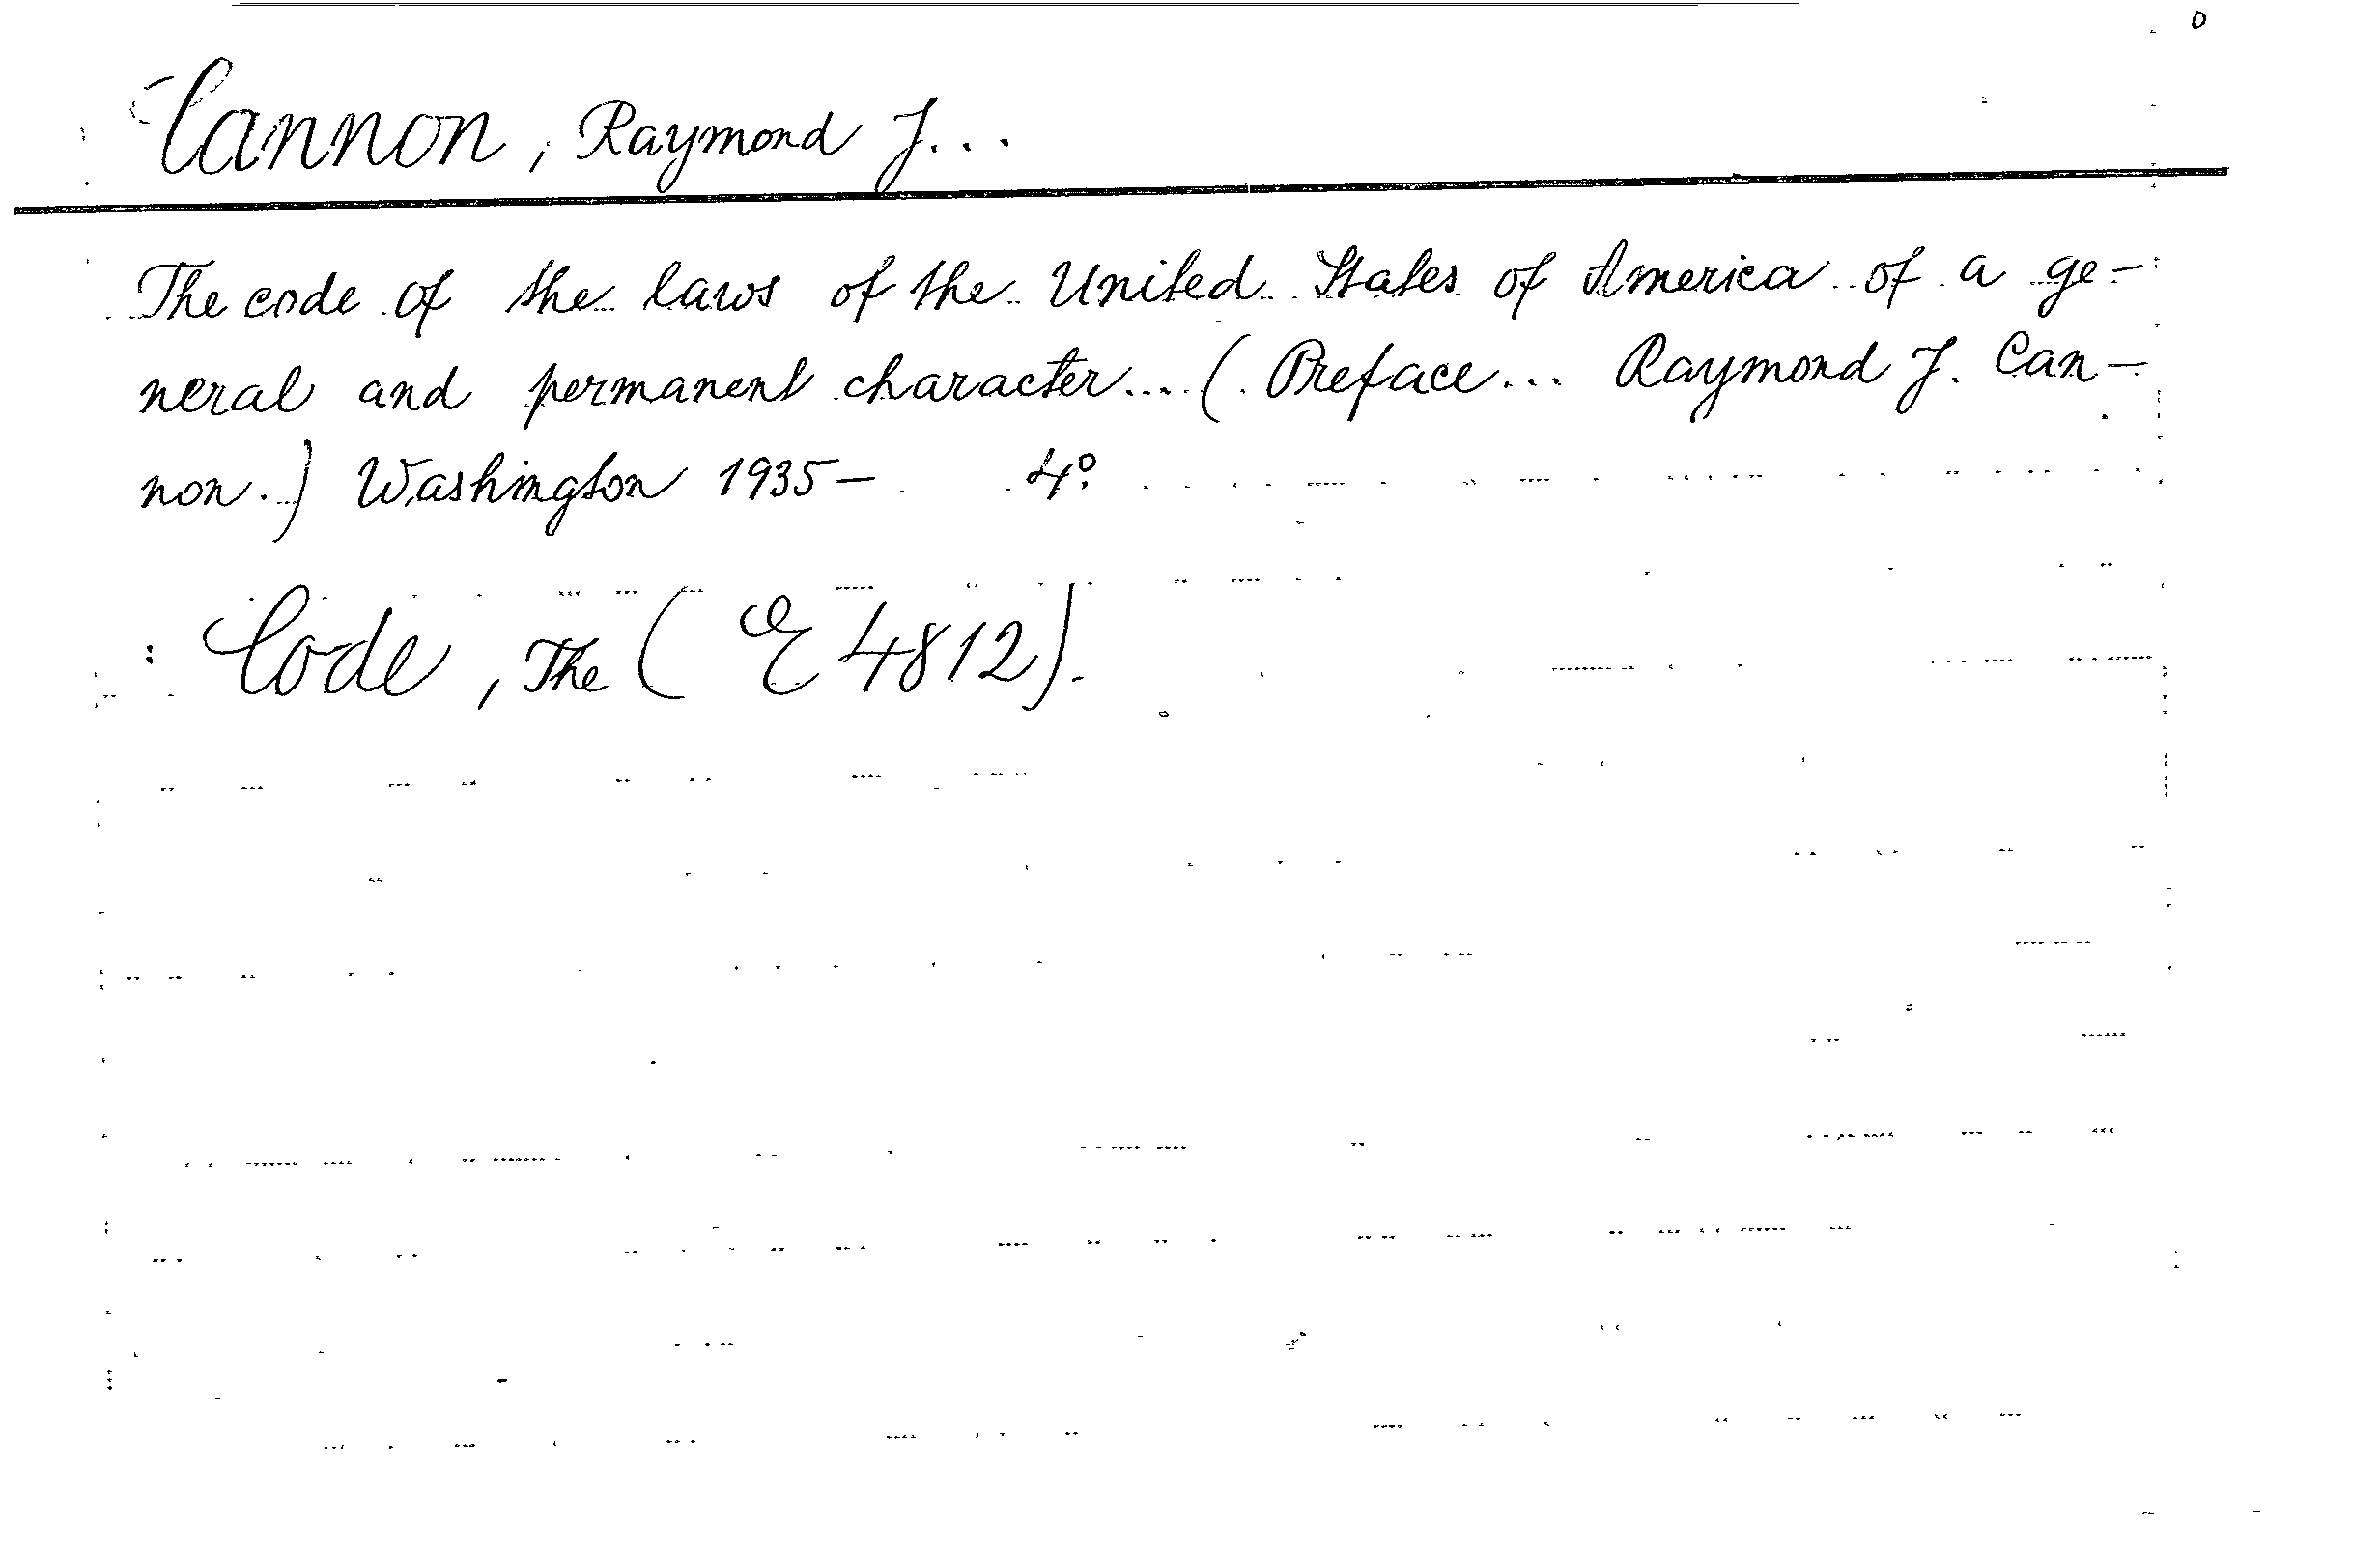 Cannon, Raymond J...
The code of the laws of the United States of America of a ge-
neral and permanent character... (Preface... Raymond J. Can-
non.) Washington 1935- 4º.
: Code, The (E 4812).